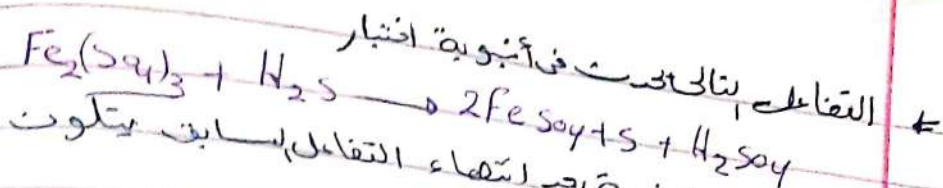 التفاعل التالى تحدث فى أنبوبة اختبار
Fe2(SO4)3 + H2S → 2FeSO4 + S + H2SO4
بعد انتهاء التفاعل السابق يتكون